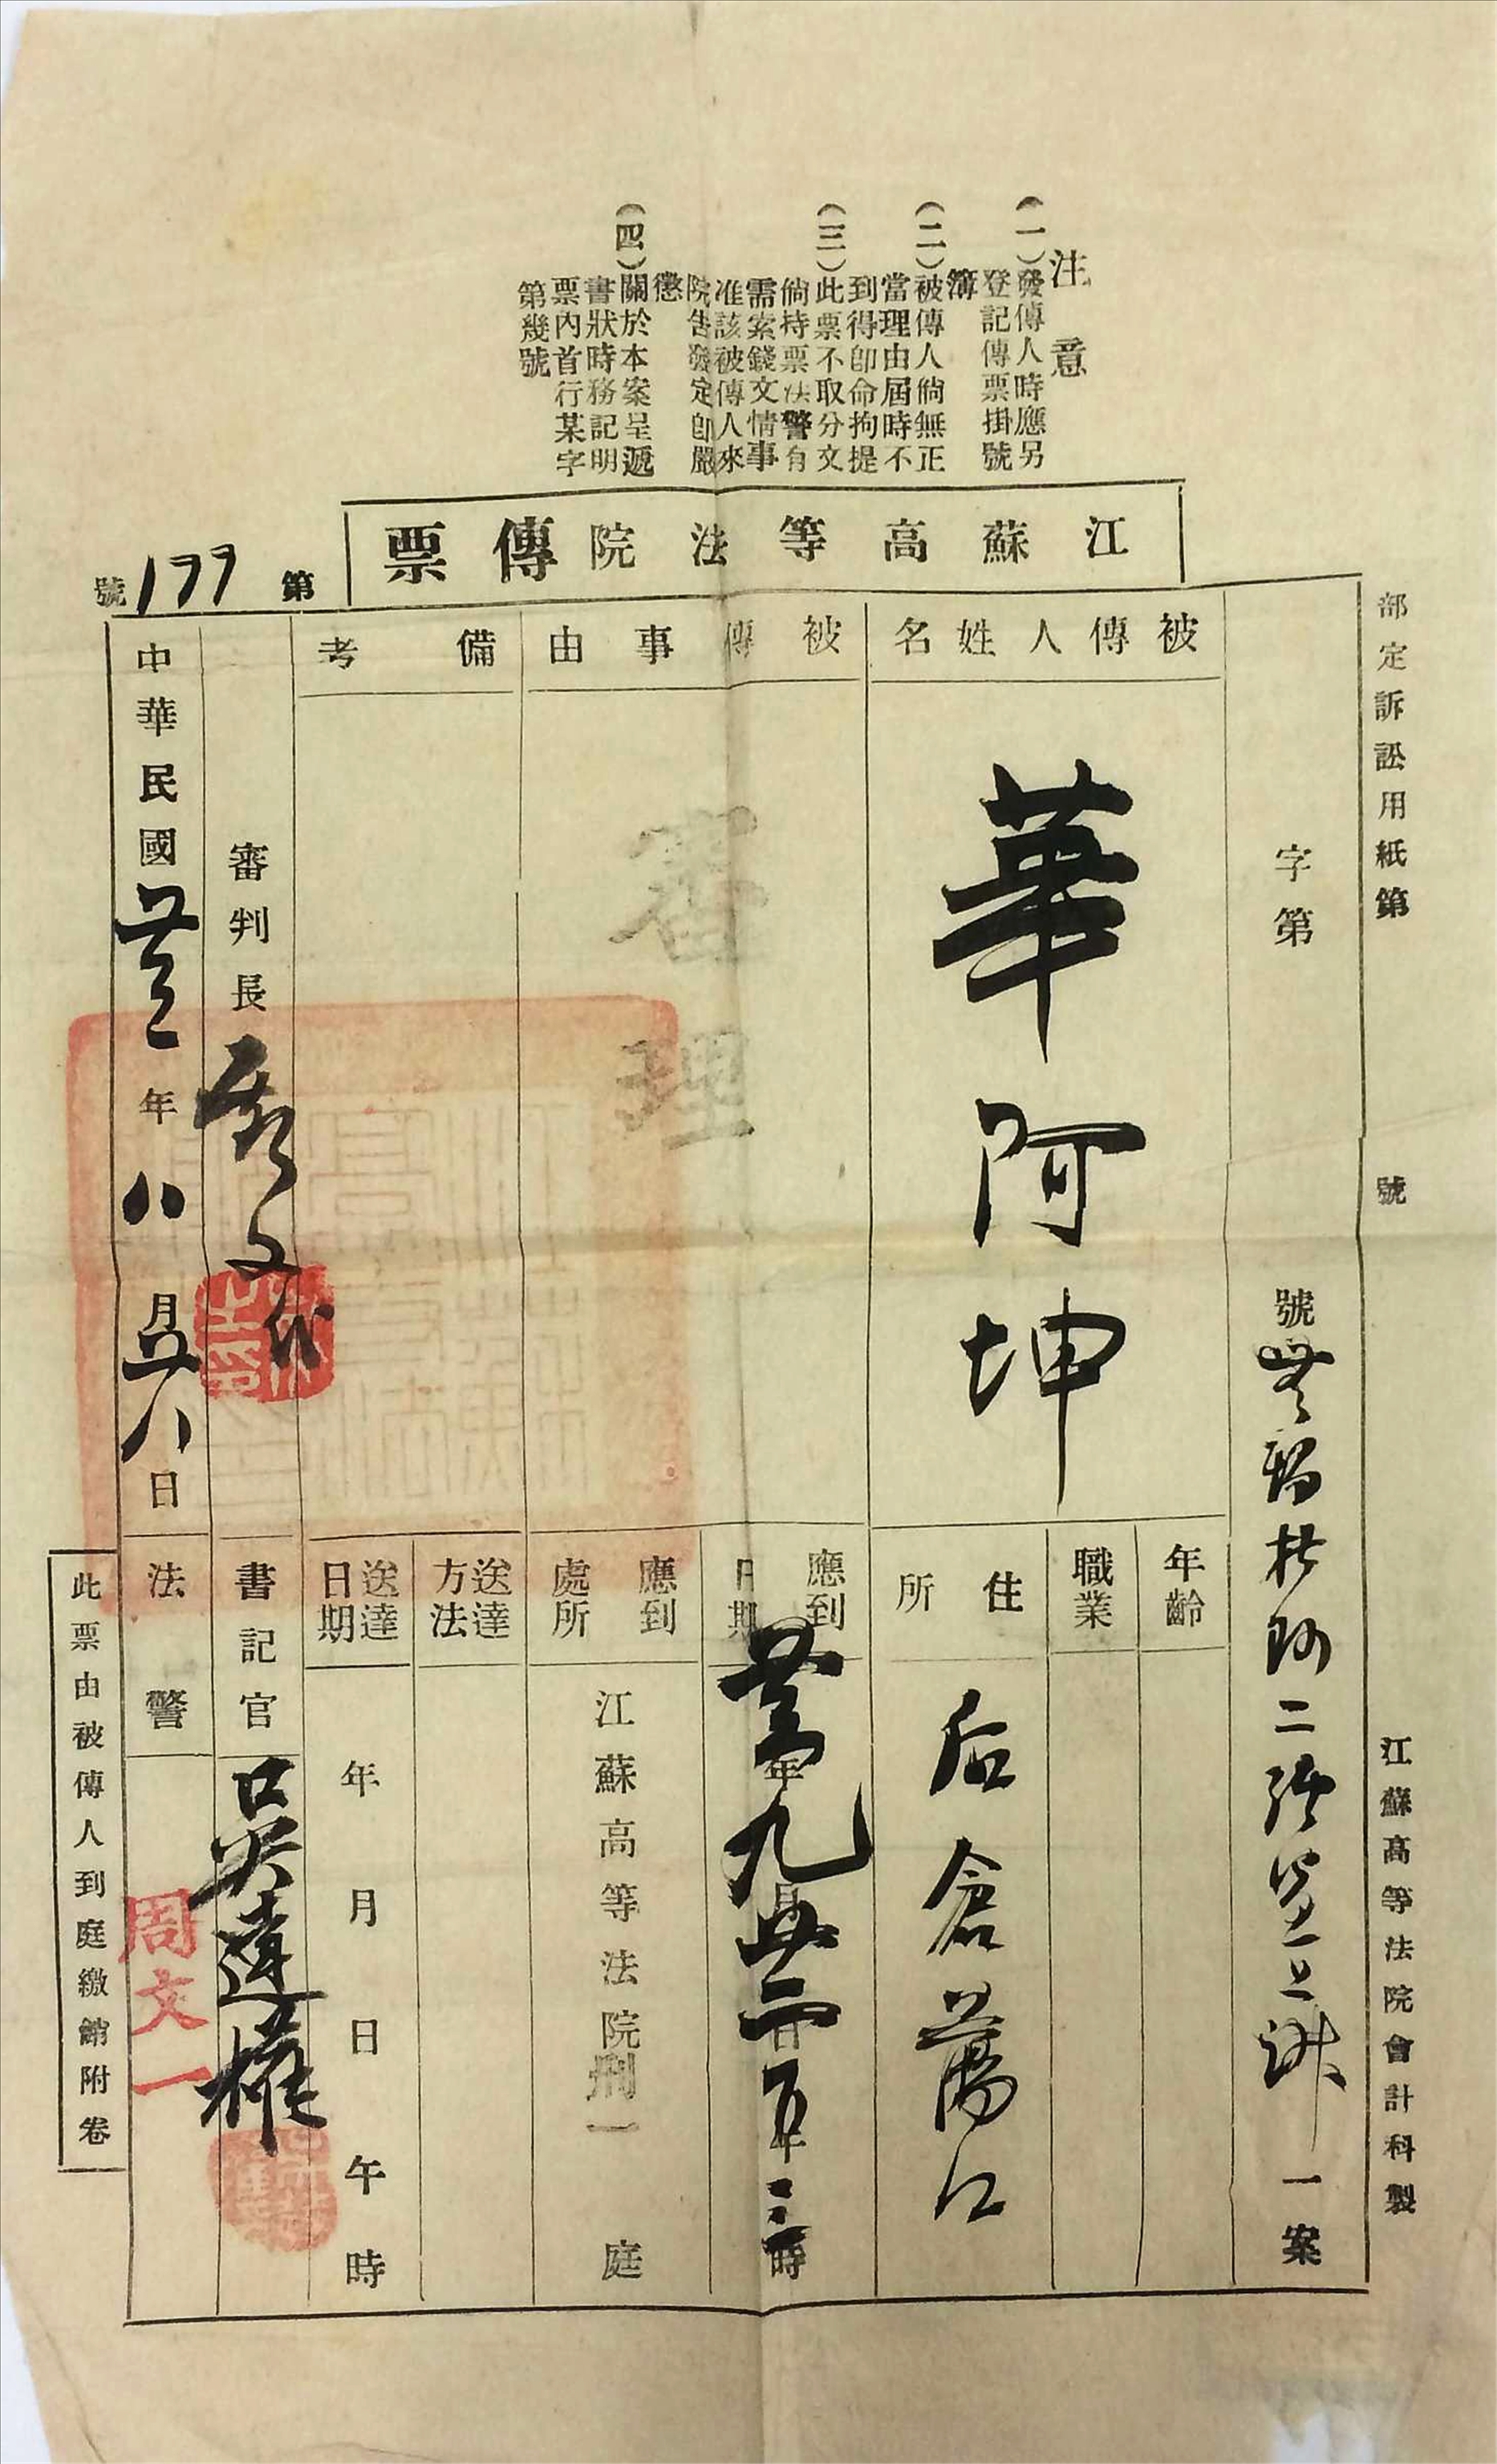 注意
(一)發傳人時應另
登記傳票掛號
簿
(二)被傳人倘無正
當理由屆時不
到得卽命拘提
(三)此票不取分文
倘持票法警有
需索錢文情事
准該被傳人來
院告發定卽嚴
懲
(四)關於本案呈遞
書狀時務記明
票內首行某字
第幾號
江蘇高等法院傳票
第177號
部定訴訟用紙第 號
江蘇高等法院會計科製
字第 號 一案
被傳人姓名
華阿坤
年齡
職業
住所
后倉蕩口
被傳事由
審理
應到日期
年九月廿二日下午三時
應到處所
江蘇高等法院刑一庭
備考
送達方法
送達日期
年月日午時
審判長
書記官
吳達權
中華民國 年八月廿八日
法警
周文一
此票由被傳人到庭繳銷附卷